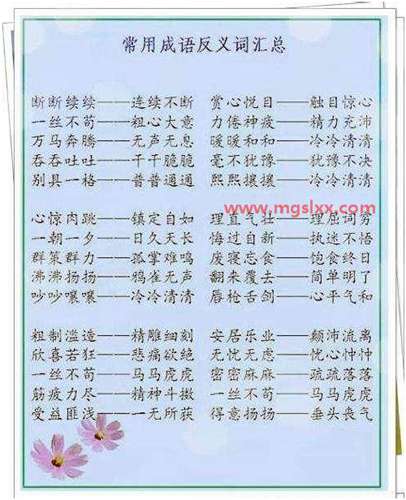 常用成语反义词汇总
断断续续——连续不断 赏心悦目——触目惊心
一丝不苟——粗心大意 力倦神疲——精力充沛
万马奔腾——无声无息 暖暖和和——冷冷清清
吞吞吐吐——干干脆脆 毫不犹豫——犹豫不决
别具一格——普普通通 熙熙攘攘——冷冷清清
www.mgslxx.com
心惊肉跳——镇定自如 理直气壮——理屈词穷
一朝一夕——日久天长 悔过自新——执迷不悟
群策群力——孤掌难鸣 废寝忘食——饱食终日
沸沸扬扬——鸦雀无声 翻来覆去——简单明了
吵吵嚷嚷——冷冷清清 唇枪舌剑——心平气和
粗制滥造——精雕细刻 安居乐业——颠沛流离
欣喜若狂——悲痛欲绝 无忧无虑——忧心忡忡
一丝不苟——马马虎虎 密密麻麻——疏疏落落
筋疲力尽——精神斗擞 一丝不苟——马马虎虎
受益匪浅——一无所获 得意扬扬——垂头丧气